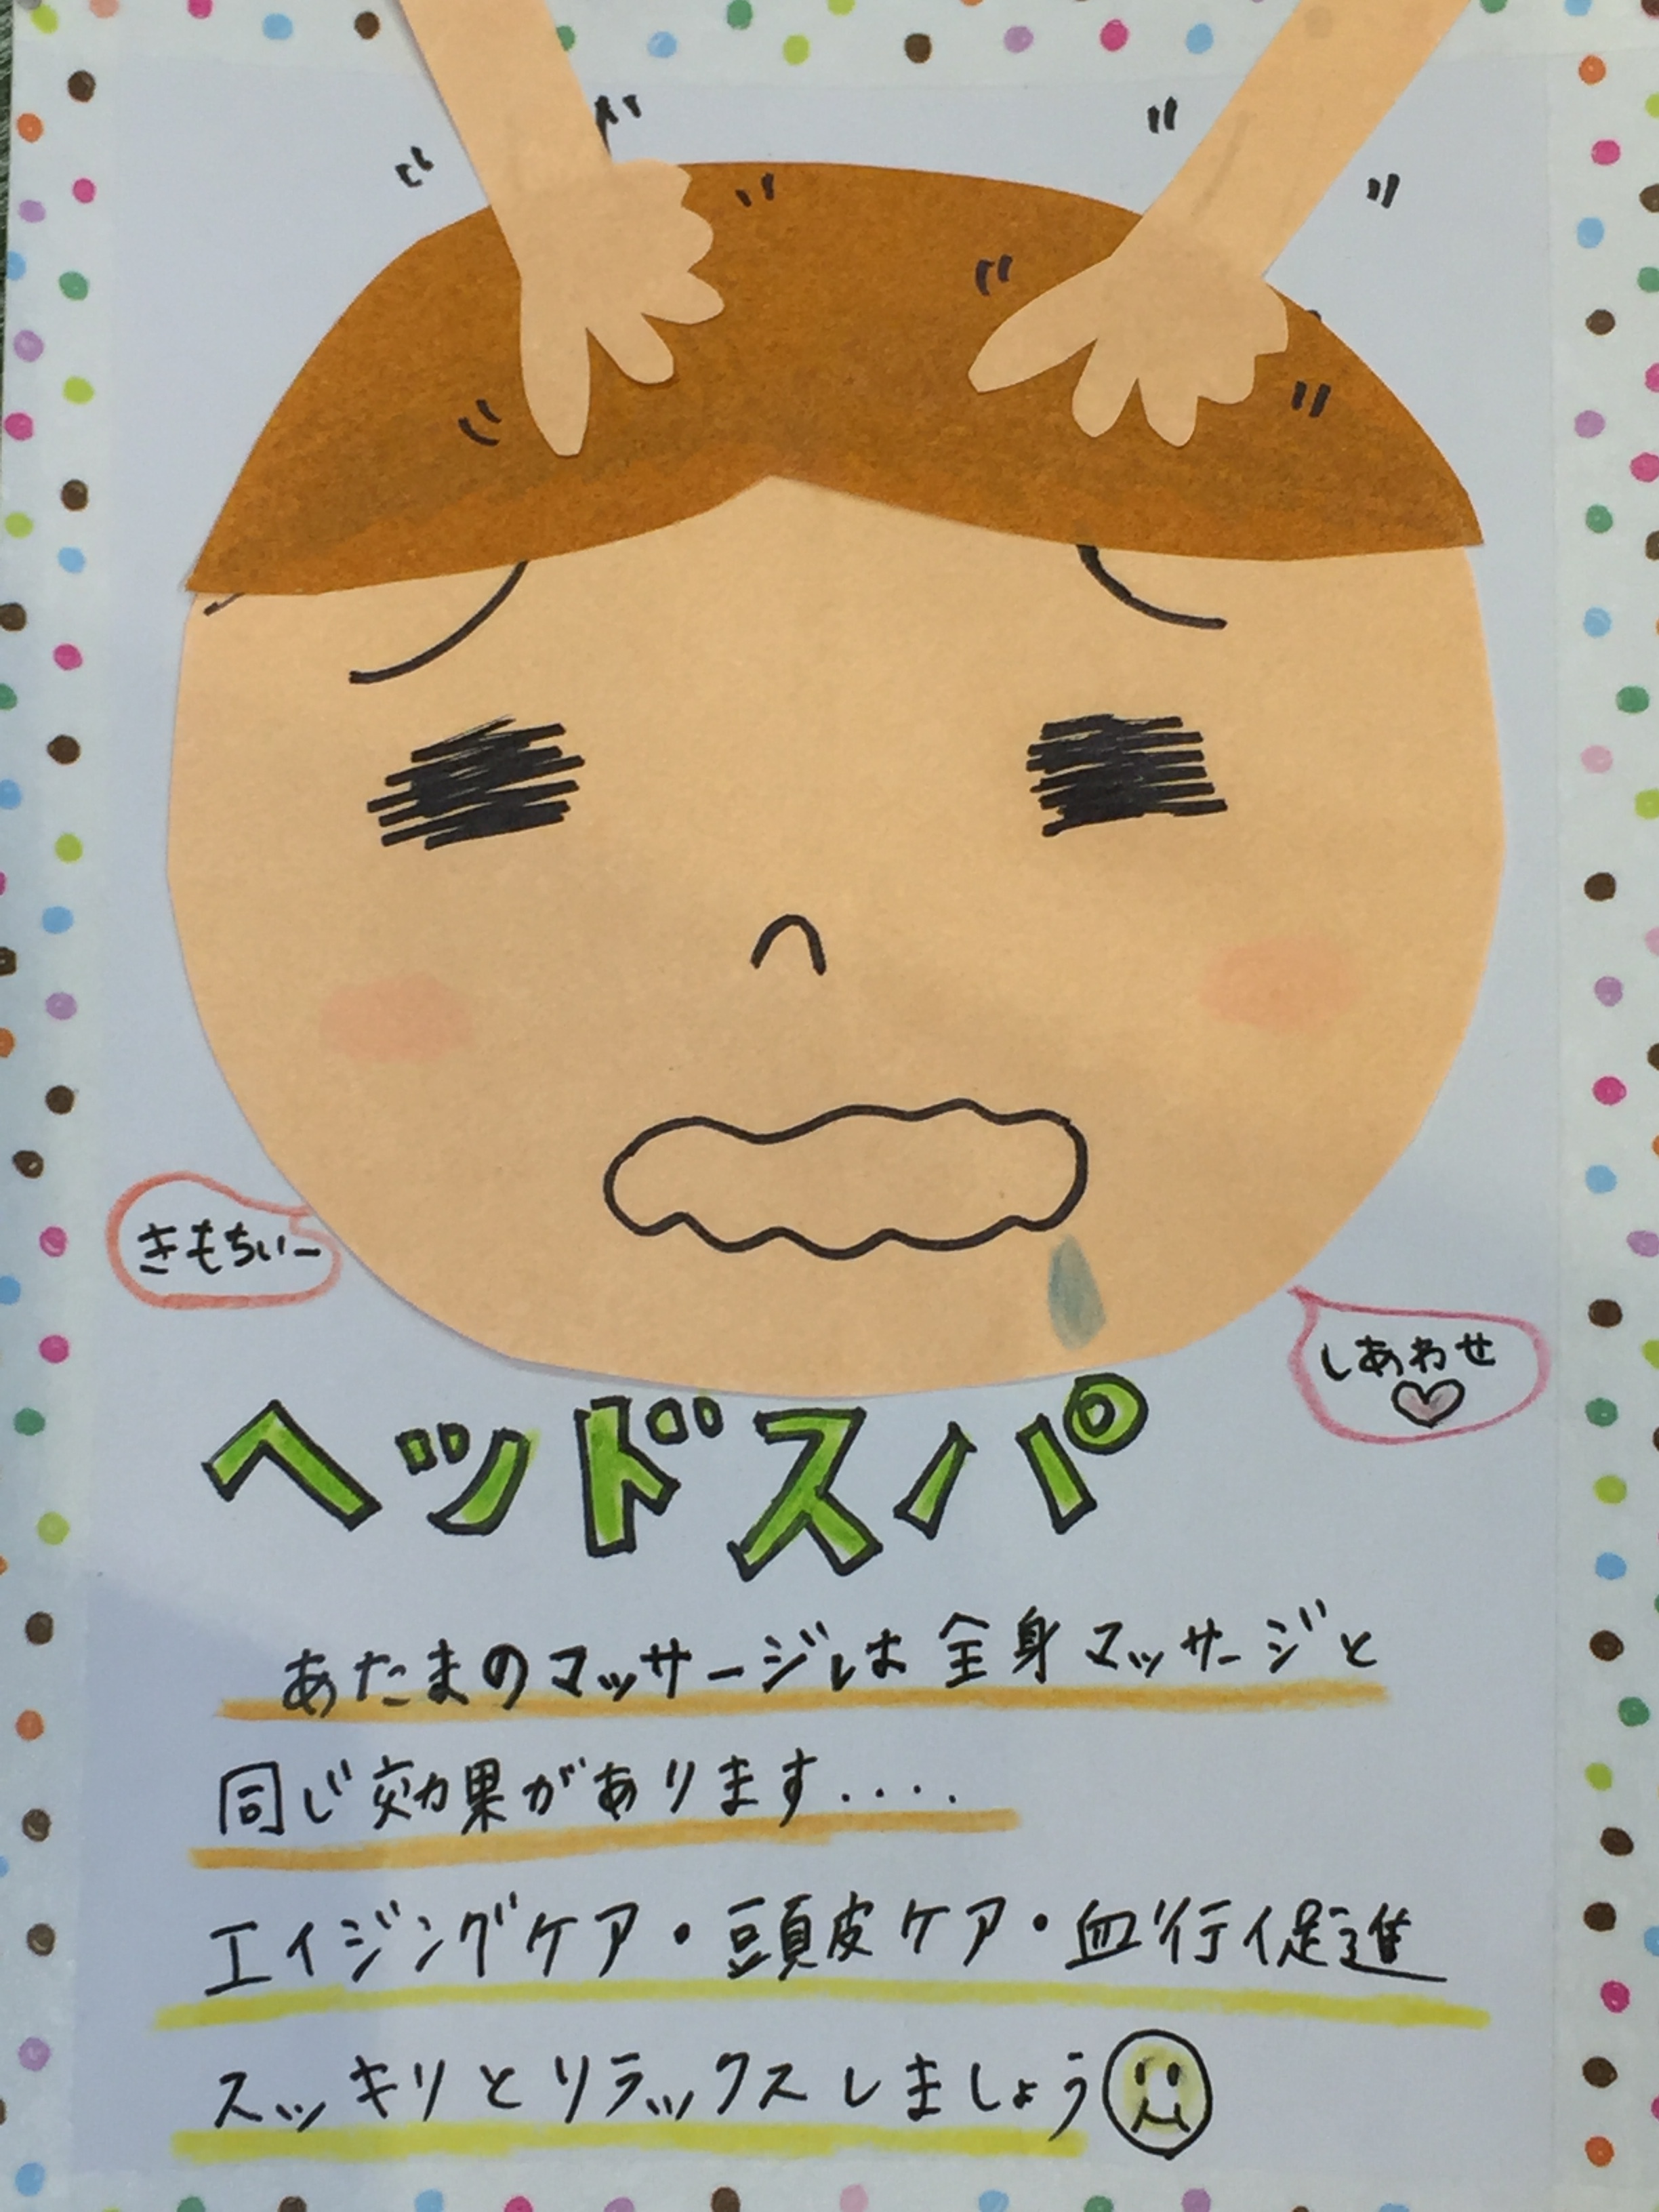 きもちぃー
しあわせ
ヘッドスパ
あたまのマッサージは全身マッサージと
同じ効果があります....
エイジングケア・頭皮ケア・血行促進
スッキリとリラックスしましょう